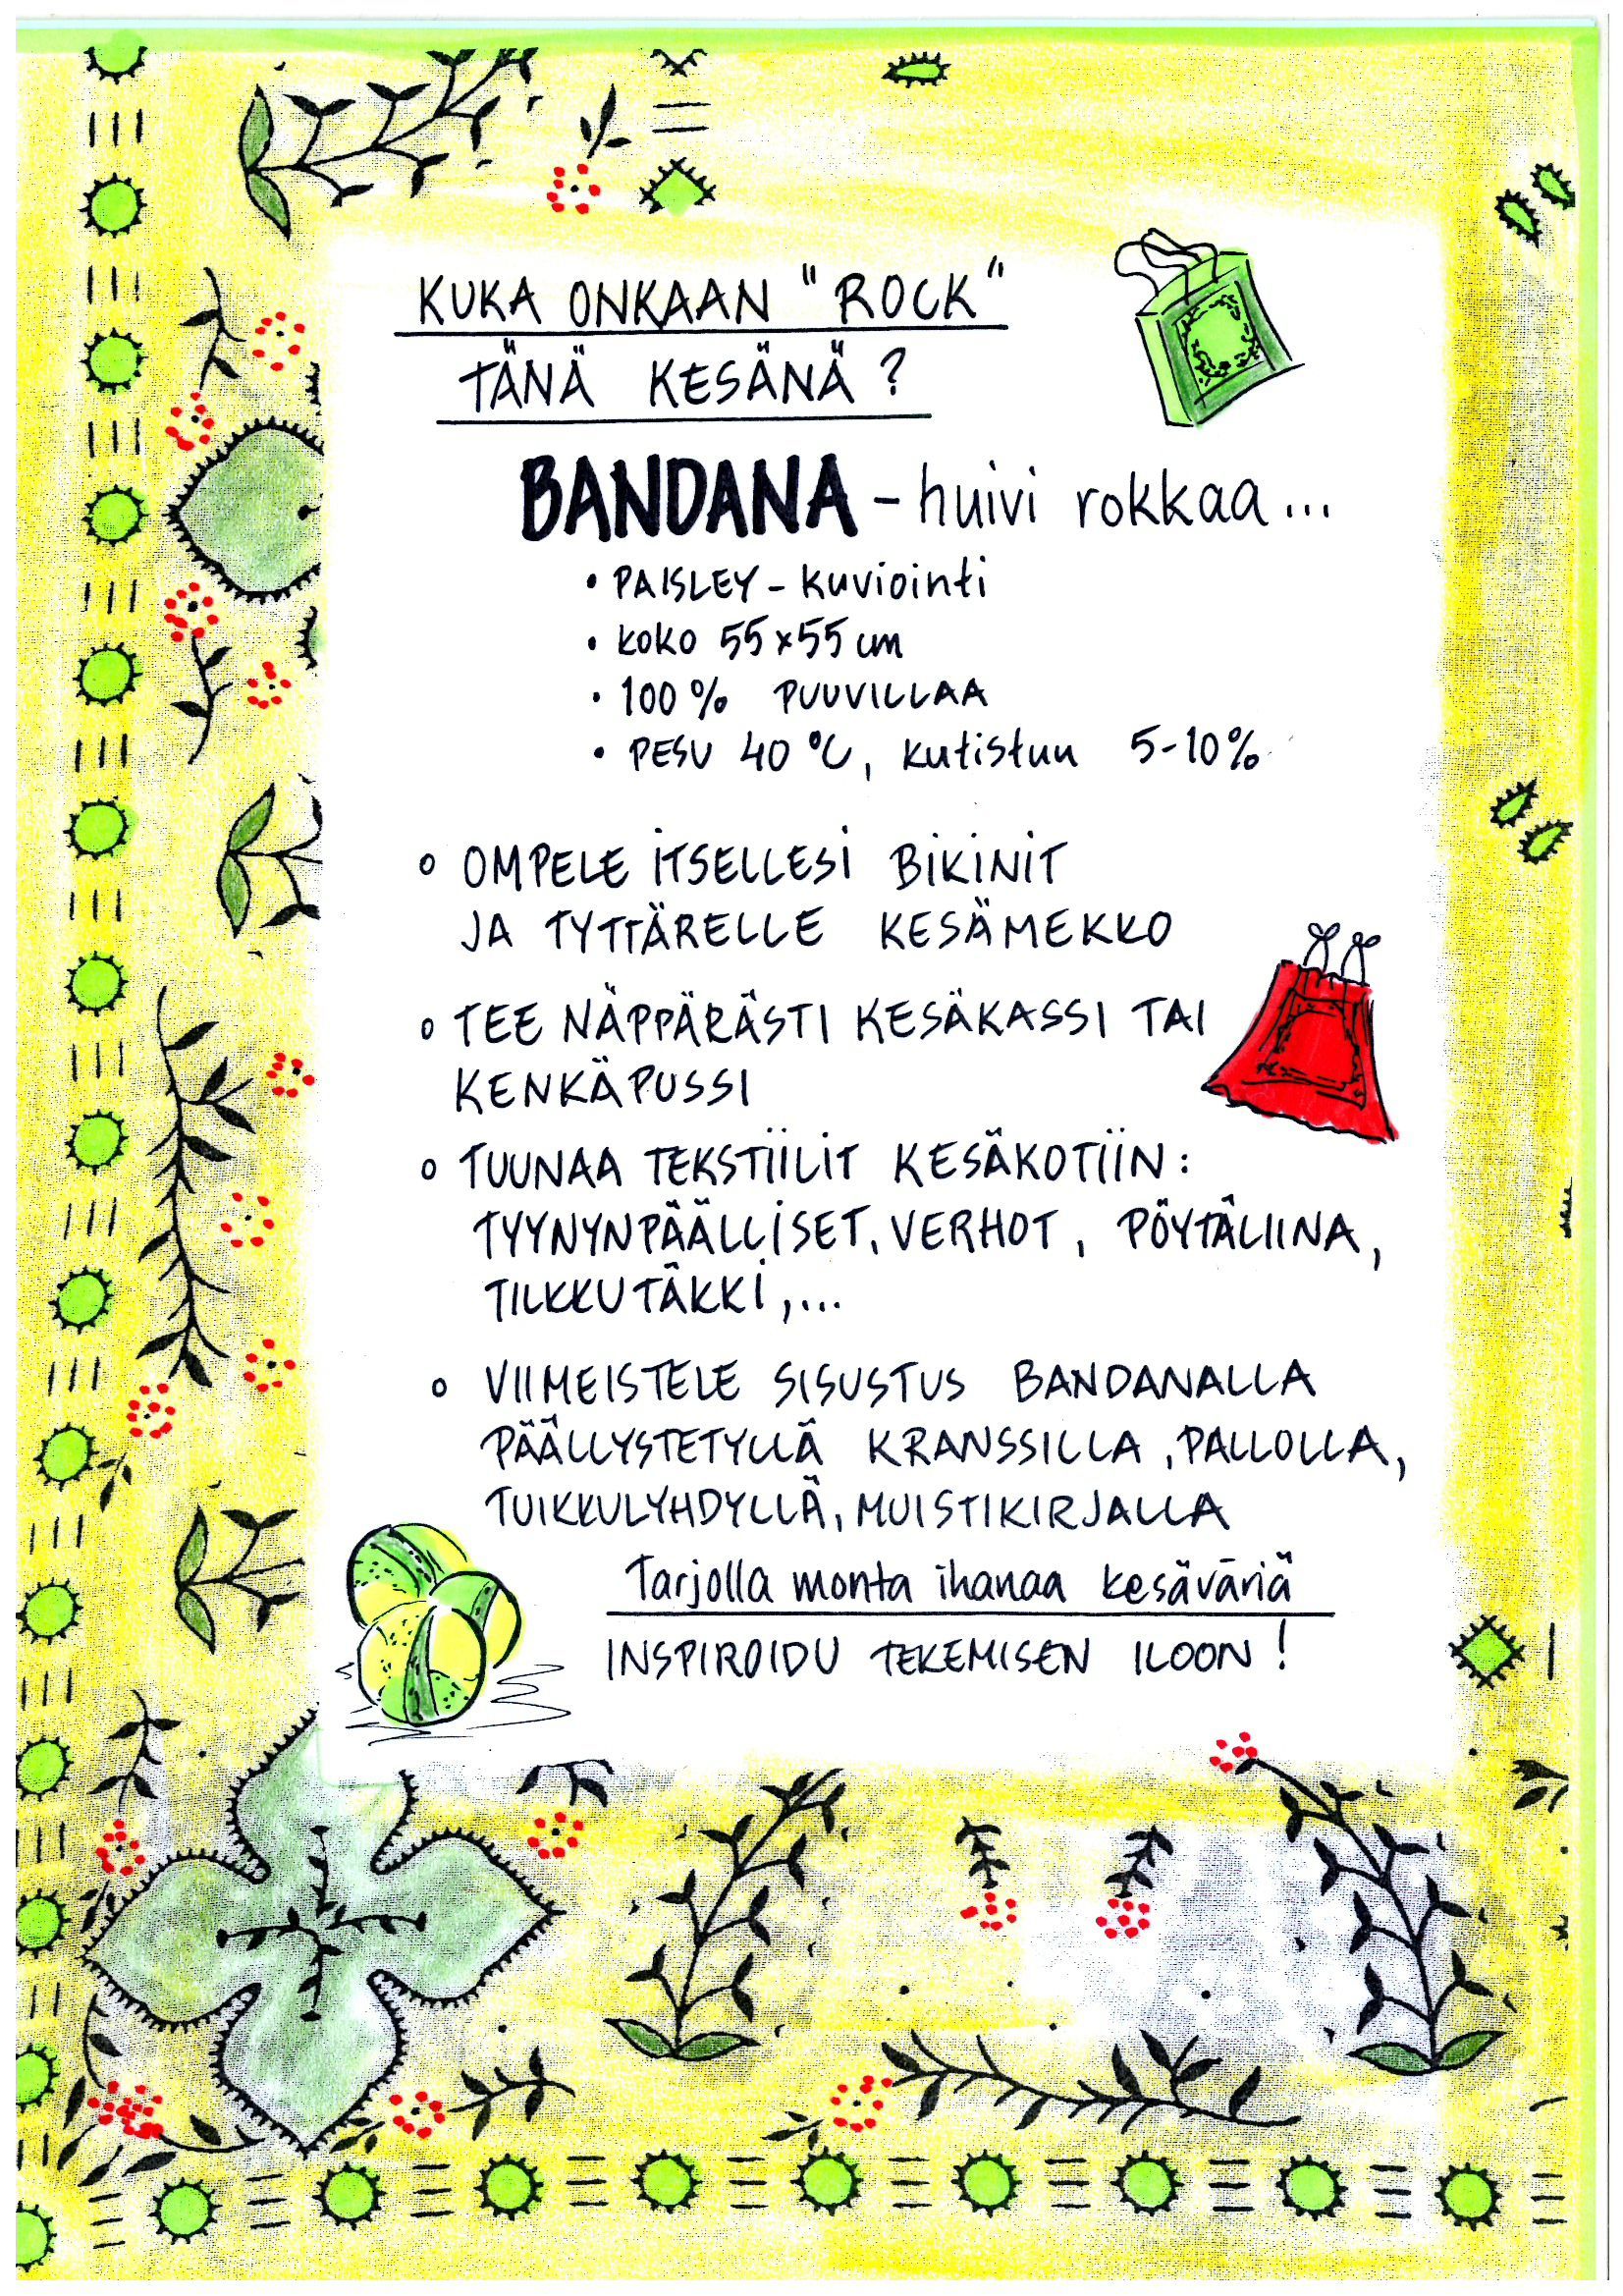 KUKA ONKAAN "ROCK"
TÄNÄ KESÄNÄ?
BANDANA - huivi rokkaa...
• PAISLEY - kuviointi
• koko 55x55 cm
• 100% PUUVILLAA
• PESU 40 °C, kutistuu 5-10%
o OMPELE ITSELLESI BIKINIT
JA TYTTÄRELLE KESÄMEKKO
o TEE NÄPPÄRÄSTI KESÄKASSI TAI
KENKÄPUSSI
o TUUNAA TEKSTIILIT KESÄKOTIIN:
TYYNYNPÄÄLLISET, VERHOT, PÖYTÄLIINA,
TILKKUTÄKKI,...
o VIIMEISTELE SISUSTUS BANDANALLA
PÄÄLLYSTETYLLÄ KRANSSILLA, PALLOLLA,
TUIKKULYHDYLLÄ, MUISTIKIRJALLA
Tarjolla monta ihanaa kesäväriä
INSPIROIDU TEKEMISEN ILOON!